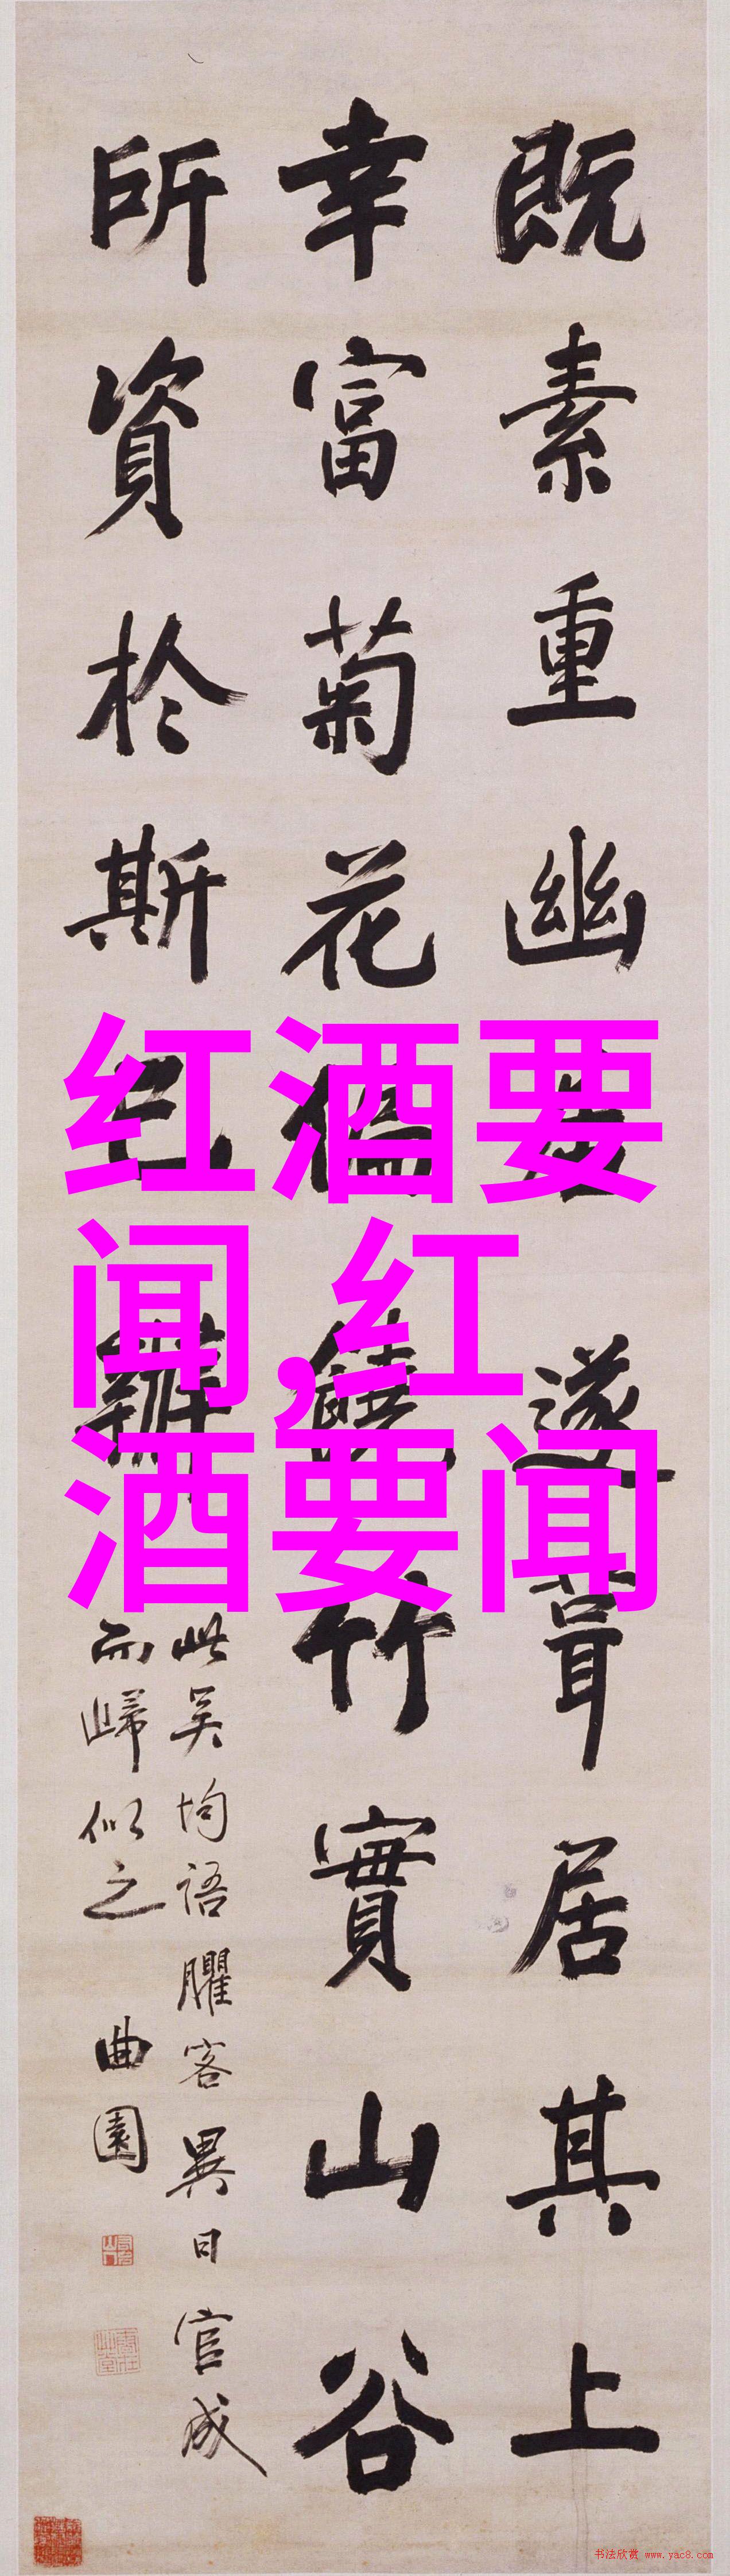 既素重幽遂葺居其上
幸富菊花偏饒竹實山谷
所資於斯已辦
此吴均語臞客異日官成
而歸似之 曲園
红酒要
闻,红
酒要闻
书法欣赏 www.yac8.com